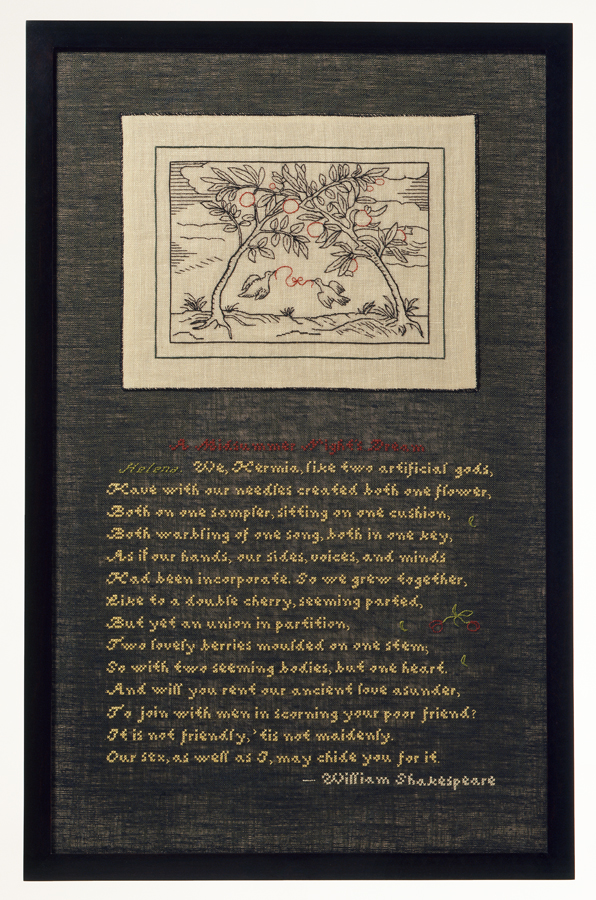 A Midsummer Night's Dream
Helena. We, Hermia, like two artificial gods,
Have with our needles created both one flower,
Both on one sampler, sitting on one cushion,
Both warbling of one song, both in one key,
As if our hands, our sides, voices, and minds
Had been incorporate. So we grew together,
Like to a double cherry, seeming parted,
But yet an union in partition,
Two lovely berries moulded on one stem;
So with two seeming bodies, but one heart.
And will you rent our ancient love asunder,
To join with men in scorning your poor friend?
It is not friendly, 'tis not maidenly.
Our sex, as well as I, may chide you for it.
— William Shakespeare